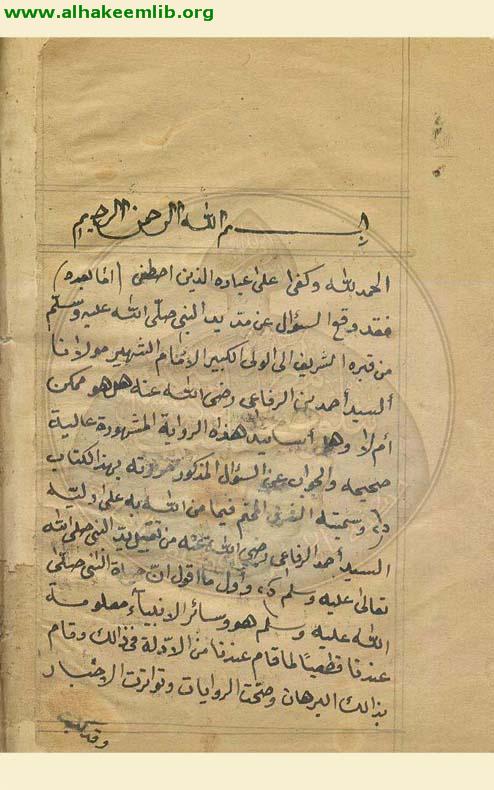 www.alhakeemlib.org
بسم الله الرحمن الرحيم
الحمد لله وكفى على عباده الذين اصطفى (اما بعد)
فقد وقع السؤال عن مد يد النبي صلى الله عليه وسلم
من قبره الشريف الى الولى الكبير الامام الشهير مولانا
السيد أحمد بن الرفاعى رضى الله عنه هل هو ممكن
أم لا وهل أسانيد هذه الرواية المشهورة عالية
صحيحه والجواب عن السؤال المذكور حررته بهذا الكتاب
وسميته الشرف المحتم فيما من الله به على وليه
السيد أحمد الرفاعى رضى الله عنه من تقبيل يد النبى صلى الله
تعالى عليه وسلم وأول ما اقول ان حياة النبى صلى
الله عليه وسلم هو وسائر الانبياء معلومة
عندنا قطعيا لما قام عندنا من الادلة فى ذالك وقام
بذالك البرهان وصحت الروايات وتواترت الاخبار
وقد